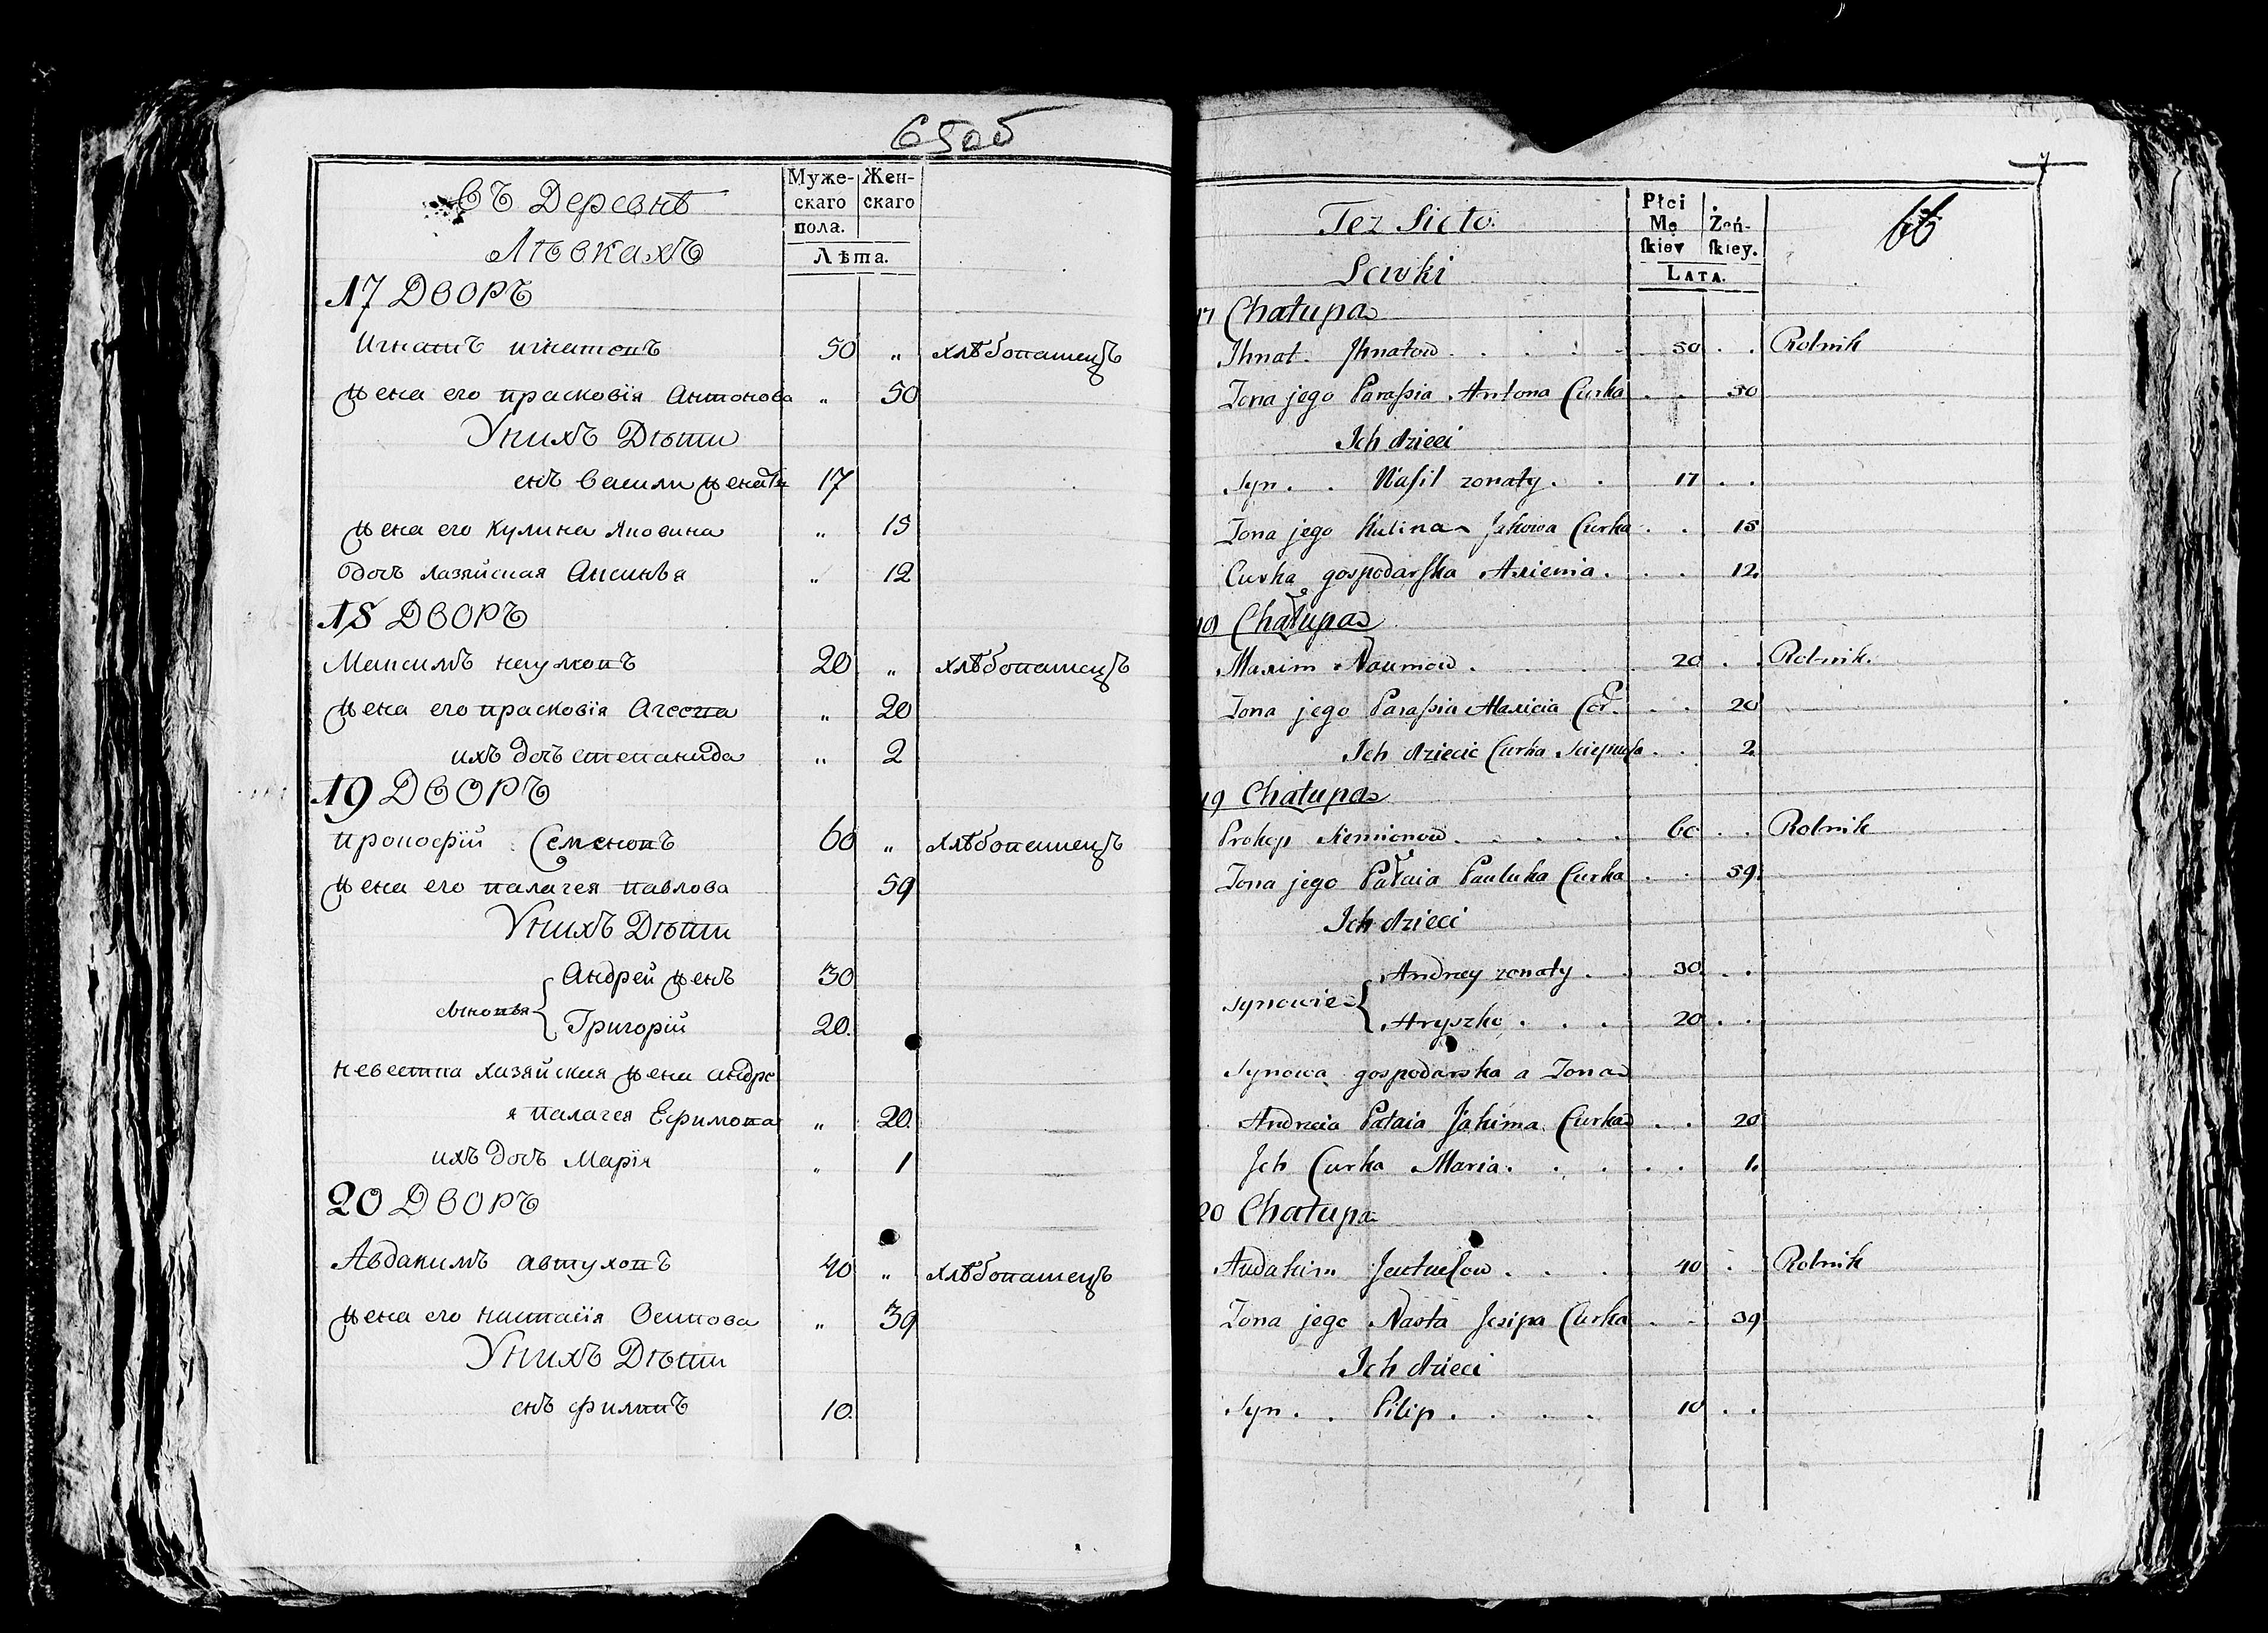 65об
Въ Деревнѣ
Лѣвкахъ
Муже-
скаго
пола.
Жен-
скаго
Лѣта.
17 Дворъ
Игнатъ игнатовъ 50 „ хлѣбопашецъ
жена его прасковія Антонова „ 50
Унихъ Дѣти
снъ василй женатъ 17
жена его Кулина Яковина „ 15
дочь хазяйская Аксинья „ 12
18 Дворъ
Максимъ наумовъ 20 „ хлѣбопашецъ
жена его прасковія „ 20
ихъ дочь степанида „ 2
19 Дворъ
прокофій Семеновъ 60 „ хлѣбопашецъ
жена его палагея павлова 59
Унихъ Дѣти
Андрей женъ 30
сыновья
Григорій 20.
невестка хазяйская жена андре
я палагея Ефимова „ 20.
ихъ дочь Марія „ 1
20 Дворъ
Авдакимъ автуховъ 40 „ хлѣбопашецъ
жена его настасія Осипова „ 39
Унихъ Дѣти
снъ филипъ 10.
66
Też Sioło.
Lewki
Płci
Mę
skiey
Żeń-
skiey.
LATA.
17 Chałupa
Ihnat Ihnatow . . . . 50 . . Rolnik
Zona jego Paraſzia Antona Curka . . 50
Ich dzieci
Syn . . Waſil zonaty . . 17 . .
Zona jego Kulina Jakowa Curka . . 15
Curka gospodarſka Axienia . . . 12.
18 Chałupa
Maxim Naumow . . . . 20 . . Rolnik.
Zona jego Paraſzia . . 20
Ich dziecie Curka . . 2.
19 Chałupa
Prokop Siemionow . . . . . 60 . . Rolnik
Zona jego Pałaia Pauluka Curka . . 59.
Ich dzieci
Andrzey zonaty . . 30. . .
Synowie
Hryszko . . . 20 . .
Synowa gospodarska a Zona
Andreia Pałaia Jakima Curka . . 20
Ich Curka Maria . . . . . . 1.
20 Chałupa
Audakim Jeutuchow . . . 40 . Rolnik
Zona jego Nasta Jozipa Curka . . 39
Ich dzieci
Syn . . Pilip . . . . 10 . .